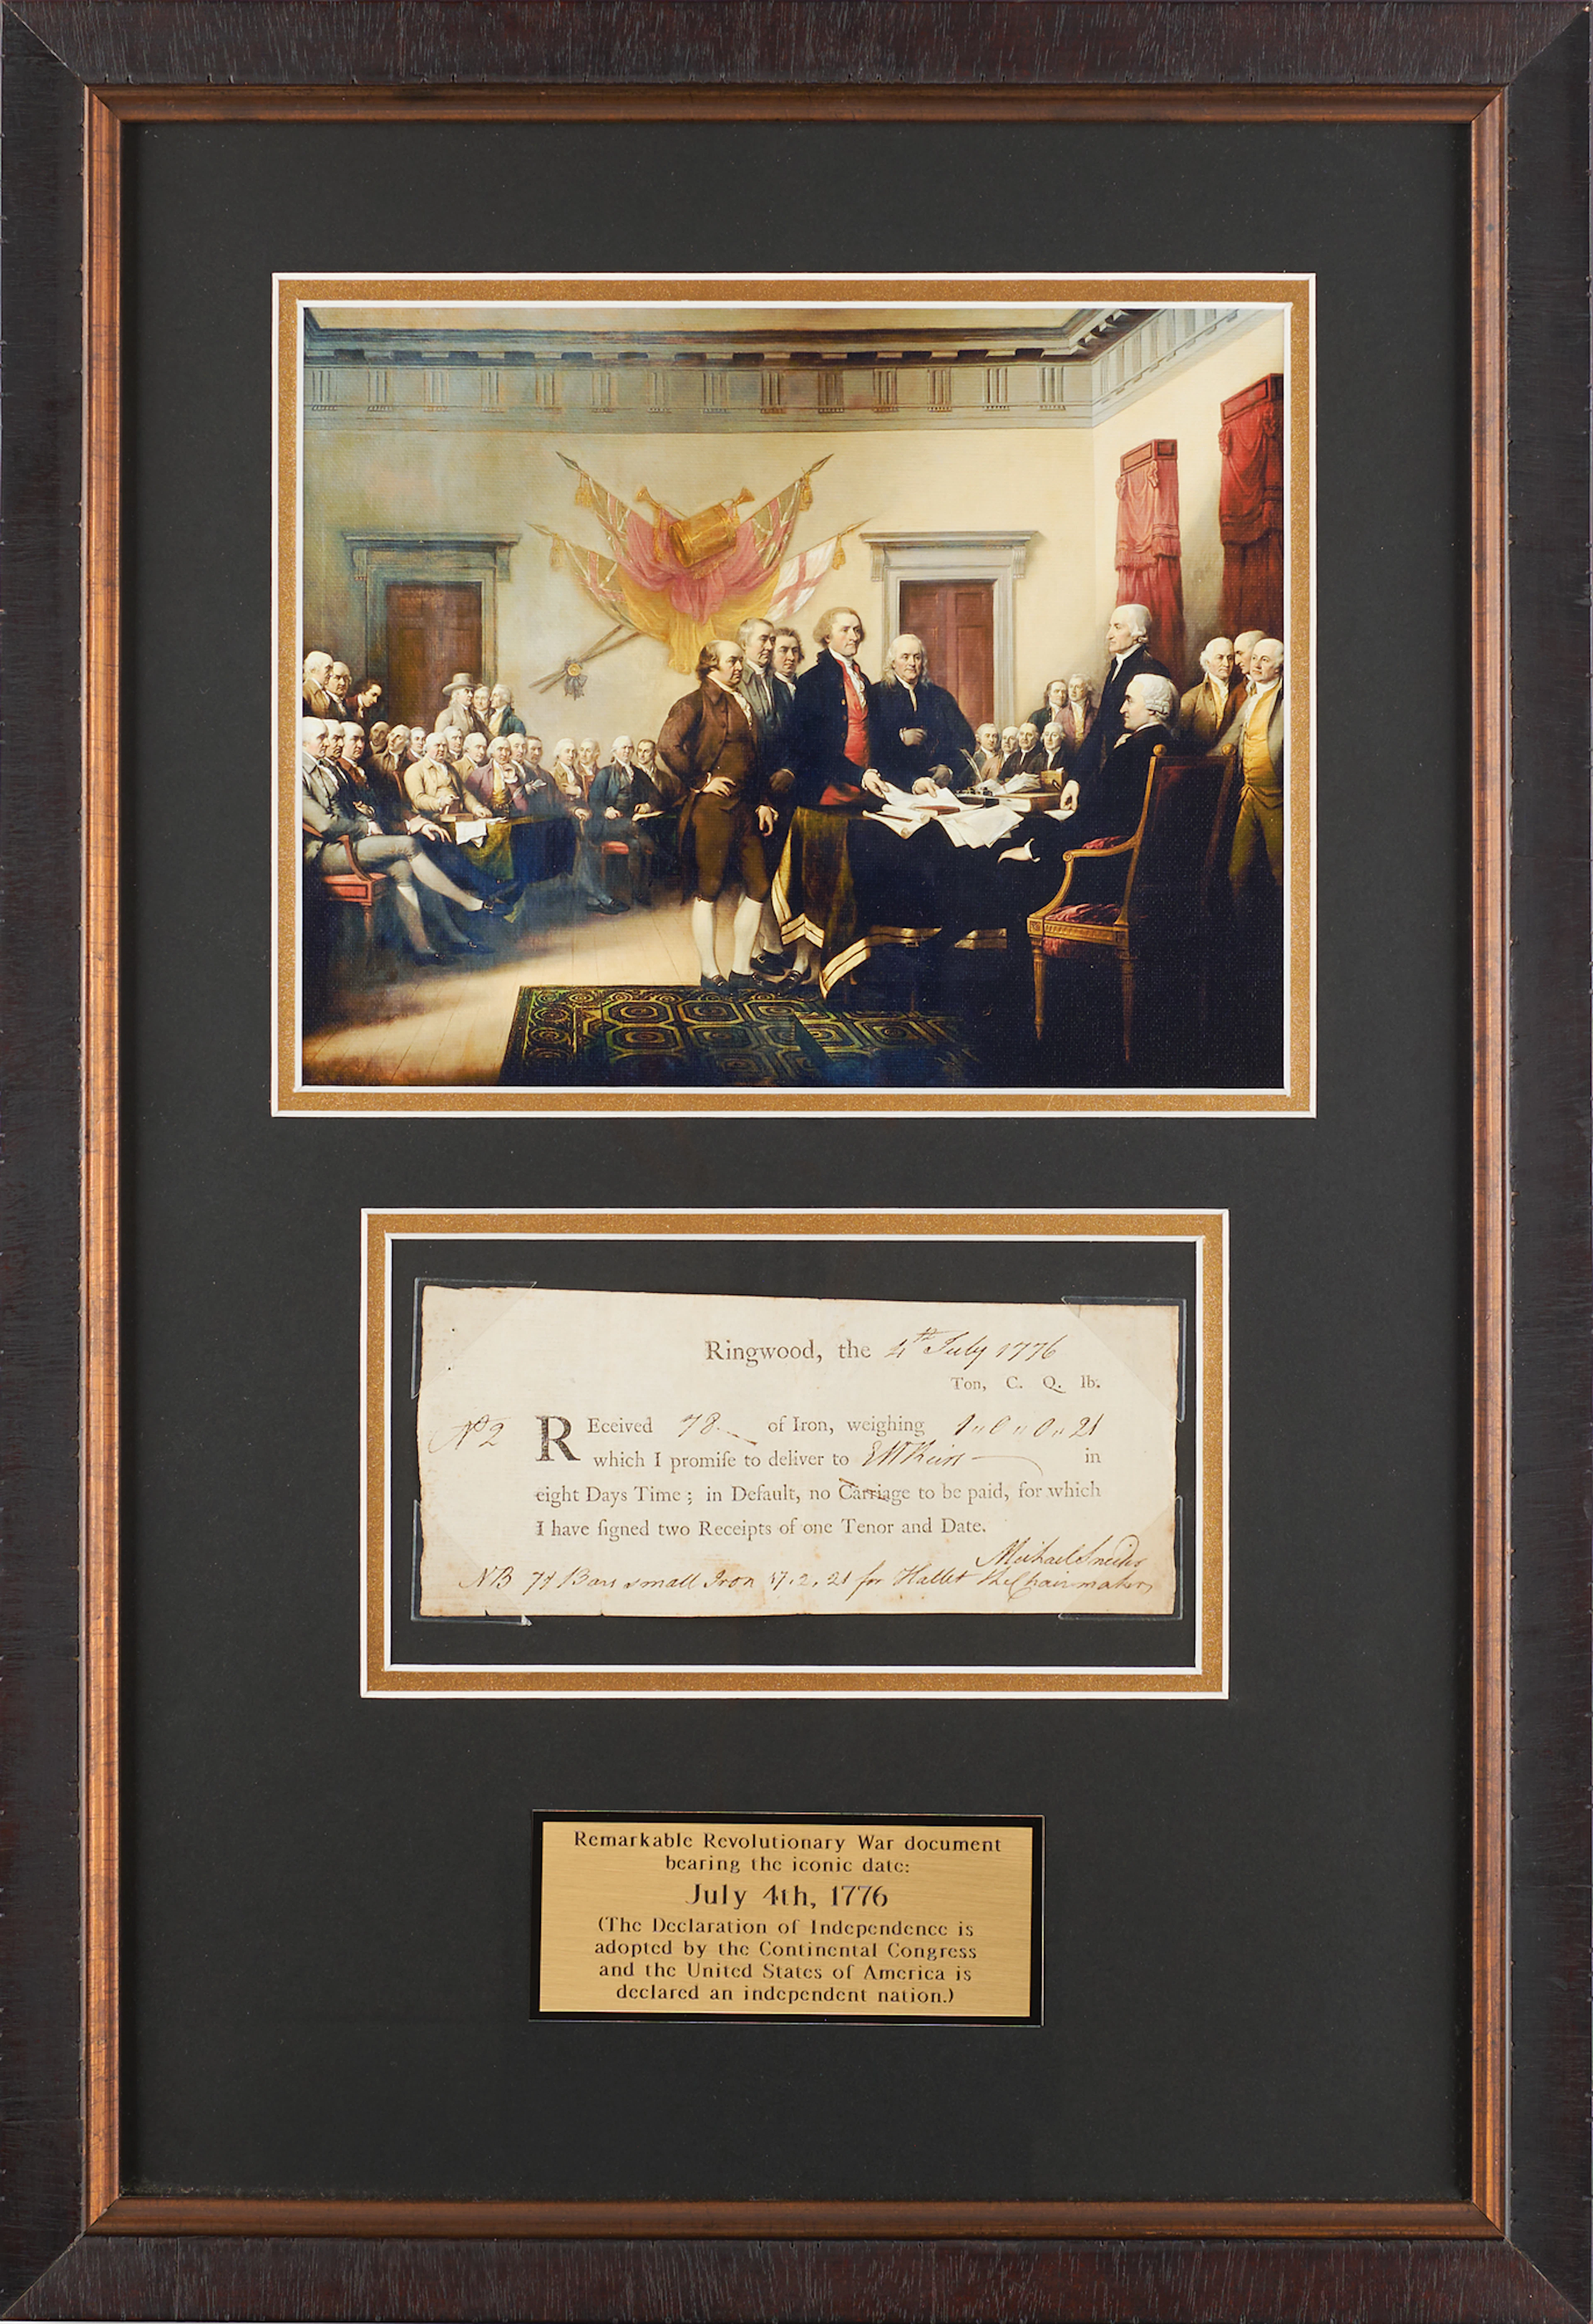 Ringwood, the 4th July 1776
Ton, C. Q. lb.
No 2 REceived 78 of Iron, weighing 1 " 0 " 0 " 21
which I promiſe to deliver to in
eight Days Time; in Default, no Carriage to be paid, for which
I have ſigned two Receipts of one Tenor and Date.
Michael
NB Bars small Iron 17.2.21 for Hallet the Chairmaker
Remarkable Revolutionary War document
bearing the iconic date:
July 4th, 1776
(The Declaration of Independence is
adopted by the Continental Congress
and the United States of America is
declared an independent nation.)